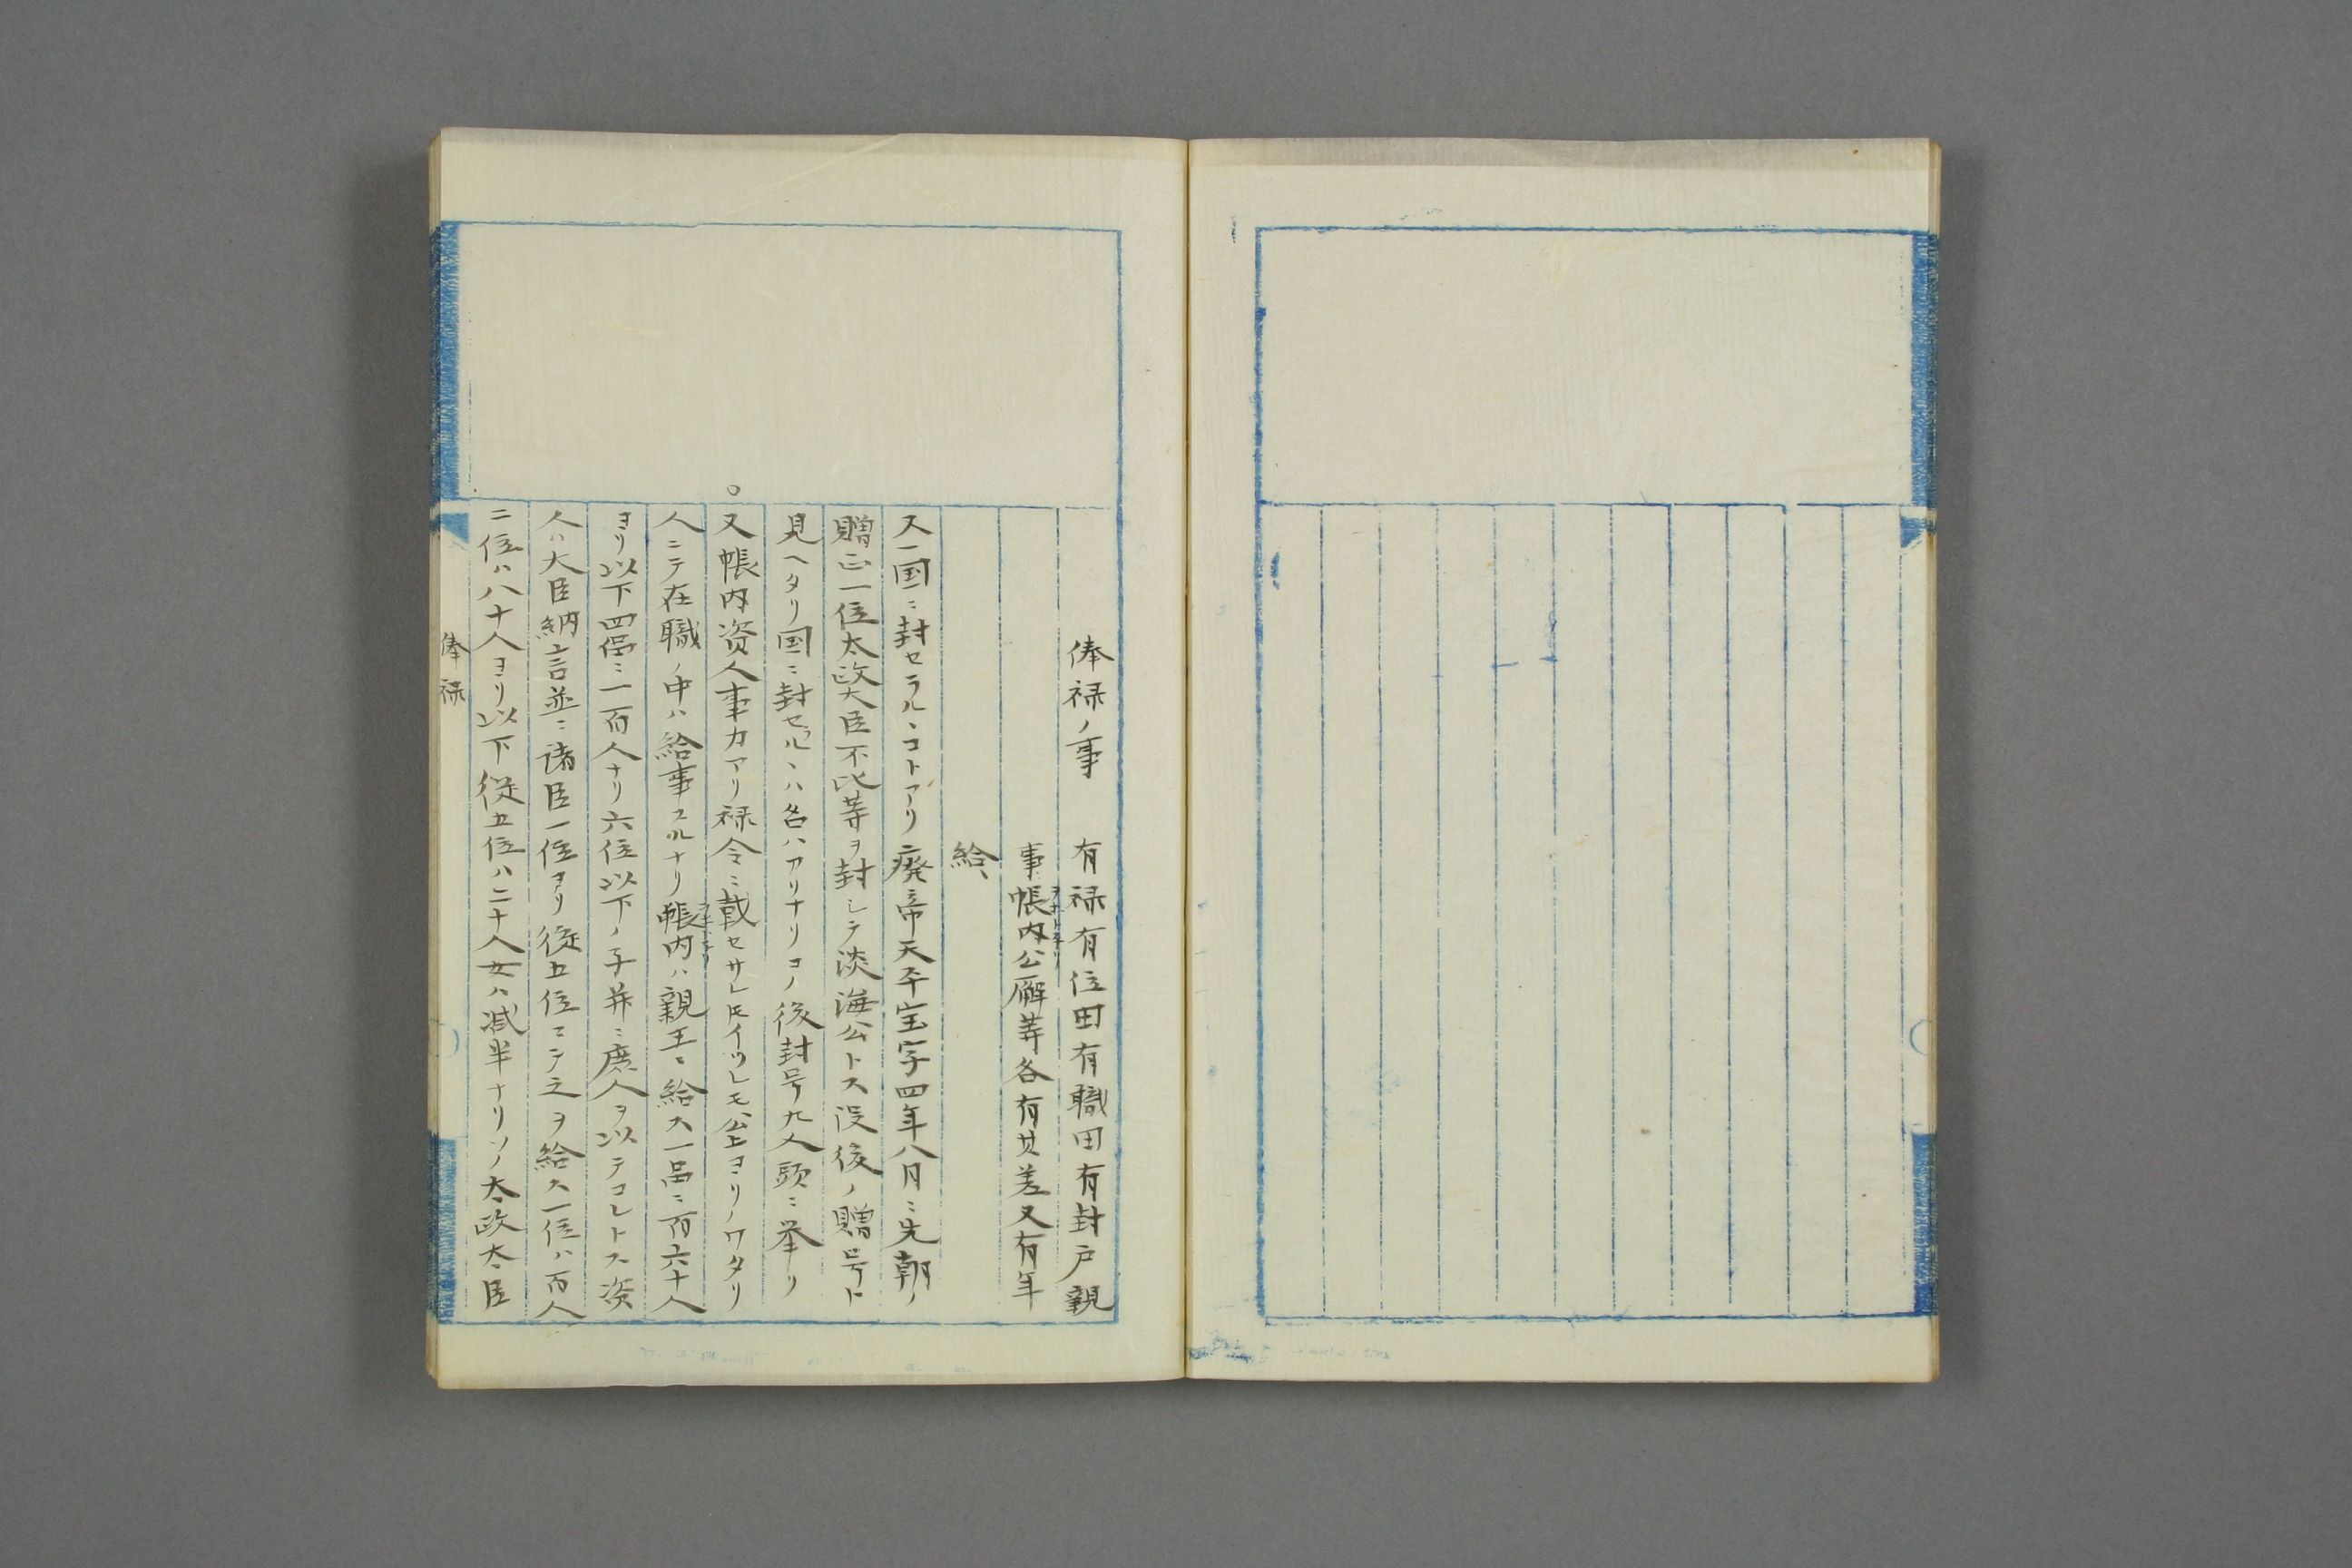 俸禄ノ事　有禄有位田有職田有封戸親
事帳内公廨等各有其差又有年
給、
又一国ニ封セラルヽコトアリ廃帝天平宝字四年八月ニ先朝ノ
贈正一位太政大臣不比等ヲ封シテ淡海公トス没後ノ贈号ト
見ヘタリ国ニ封セルヽハ名ハアリナリコノ後封号九人頭ニ挙リ
○又帳内資人事力アリ禄令ニ載セサレ𪜈イツレモ公上ヨリノワタリ
人ニテ在職ノ中ハ給事スルナリ帳内ハ親王ニ給ス一品ニ百六十人
ヨリ以下四品ニ一百人ナリ六位以下ノ子并ニ庶人ヲ以テコレトス資
人ハ大臣納言並ニ諸臣一位ヨリ従五位ニテ之ヲ給ス一位ハ百人
二位ハ八十人ヨリ以下従五位ハ二十人女ハ減半ナリソノ太政大臣
俸禄